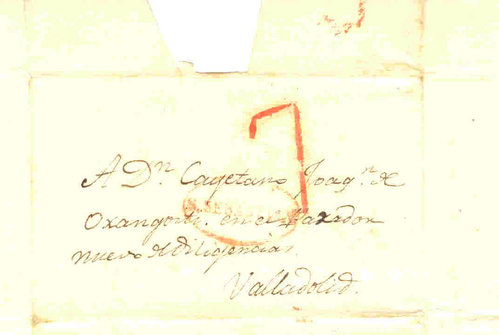 A Dⁿ Cayetano Joagⁿ de
Oxangoiti en el Parador
nuevo de diligencias
Valladolid.